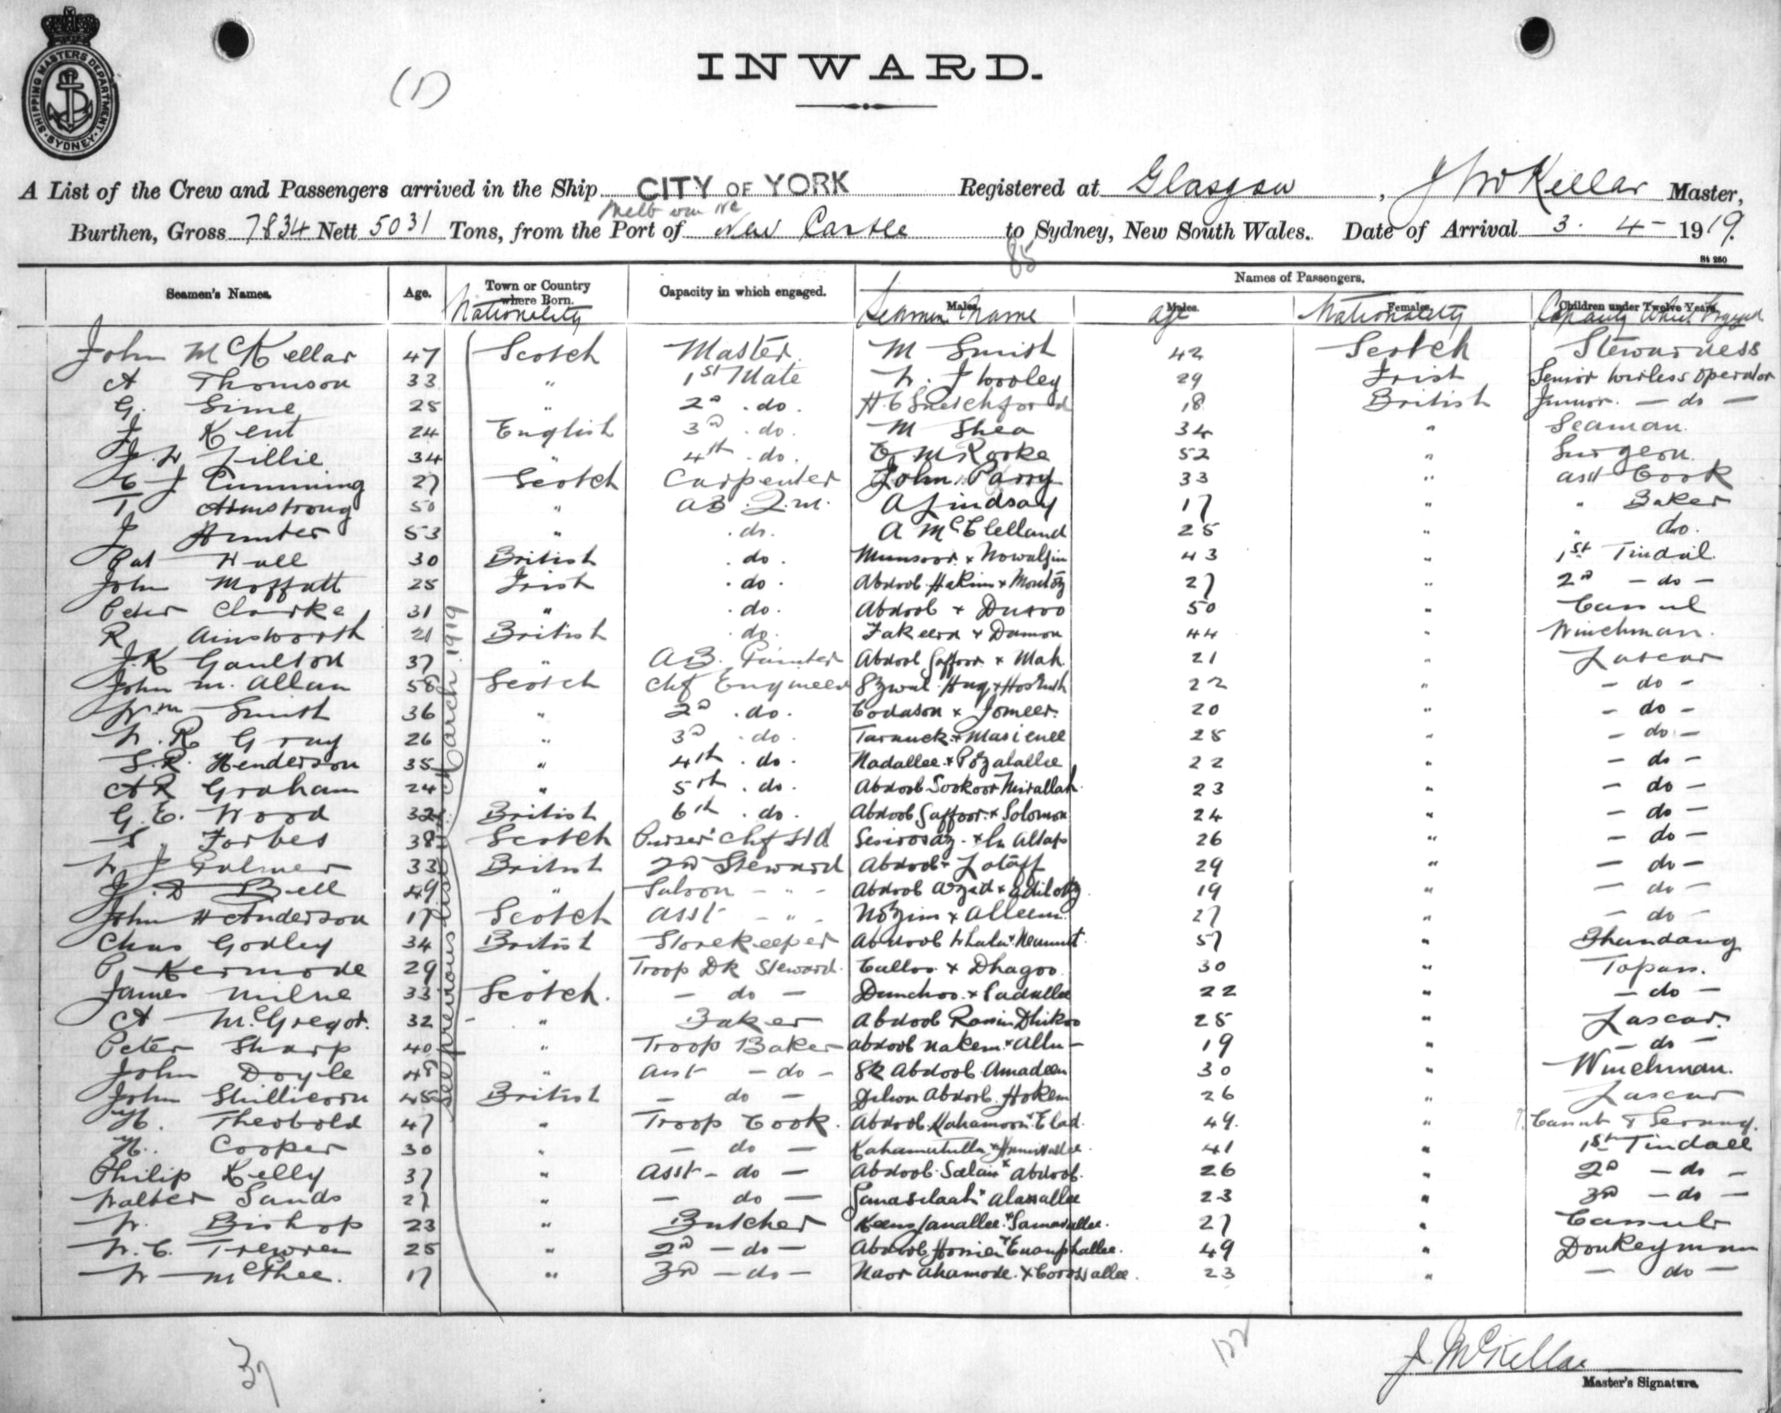 SHIPPING MASTERS DEPARTMENT
SYDNEY
(1)
INWARD.
A List of the Crew and Passengers arrived in the Ship CITY OF YORK Registered at Glasgow, J McKellar Master,
Burthen, Gross 7834 Nett 5031 Tons, from the Port of New Castle to Sydney, New South Wales. Date of Arrival 3. 4 - 1919.
85
Seamen's Names. Age. Town or Country where Born. Capacity in which engaged. Names of Passengers.
Males. Males. Females. Children under Twelve Years.
Nationality Seamen Name age Nationality Capacity
See previous list March 1919
John McKellar 47 Scotch Master M Smith 42 Scotch Stewardess
A Thomson 33 " 1st Mate W. J Wooley 29 Irish Senior Wireless Operator
G. Sime 25 " 2nd .do. 18 British Junior - do -
J Kent 24 English 3rd .do. M Shea 34 " Seaman
J. W Lillie 34 " 4th .do. E M Rooke 52 " Surgeon
C J Cumming 27 Scotch Carpenter John Parry 33 " asst Cook
T Armstrong 50 " AB. Q.M. A Lindsay 17 " " Baker
J Hunter 53 " .do. A McClelland 25 " " do.
Pat Hall 30 British .do. Munsoor x 43 " 1st Tindal
John Moffatt 25 Irish .do. Abdool Hakim x 27 " 2nd - do -
Peter Clarke 31 " .do. Abdool x 50 " Cassul
R Ainsworth 21 British .do. Fakeera x Damon 44 " Winchman.
J.K Gaulton 37 " A.B. Painter Abdool Gaffoor x Mah. 21 " Lascar
John M. Allan 58 Scotch Chf Engineer 22 " - do -
Wm Smith 36 " 2nd .do. x Jomeer. 20 " - do -
W. R Gray 26 " 3rd .do. 25 " - do -
S.R. Henderson 35 " 4th .do. 22 " - do -
A R Graham 24 " 5th .do. Abdool Sookoor 23 " - do -
G. E. Wood 32 British 6th .do. Abdool Gaffoor x Solomon 24 " - do -
S Forbes 38 Scotch Purser Chf Std 26 " - do -
W J Palmer 33 British 2nd Steward Abdool x Lotaff 29 " - do -
J. D Bell 49 " Saloon - " - Abdool 19 " - do -
John H Anderson 17 Scotch asst - " - Nozim x Alleem 27 " - do -
Chas Godley 34 British Storekeeper Abdool 57 " Bhandary
P. Kermode 29 " Troop Dk Steward. Culloo x Dhagoo 30 " Topass.
James Milne 33 Scotch. - do - 22 " - do -
A McGregor. 32 " Baker Abdool 25 " Lascar.
Peter Sharp 40 " Troop Baker Abdool 19 " - do -
John Doyle 48 " asst - do - Sk Abdool Amadeen 30 " Winchman.
John 45 British - do - Abdool Hokem 26 " Lascar
H. Theobold 47 " Troop Cook. Abdool 49. "
H. Cooper 30 " - do - 41 " 1st Tindall
Philip Kelly 37 " asst - do - Abdool Salam x Abdool. 26 " 2nd - do -
Walter Sands 27 " - do - 23 " 3rd - do -
W. Bishop 23 " Butcher 27 " Cassub
W. C. Trewren 25 " 2nd - do - Abdool 49 " Donkeyman
W McPhee. 17 " 3rd - do - 23 " - do -
37
122
J McKellar
Master's Signature.